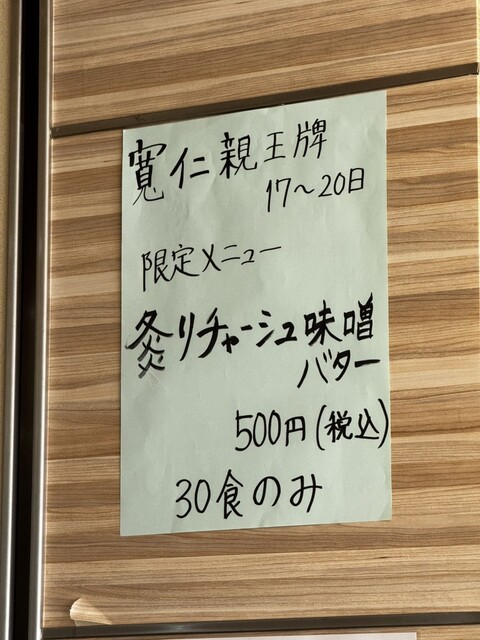 寛仁親王牌
17〜20日
限定メニュー
炙りチャーシュ味噌
バター
500円(税込)
30食のみ